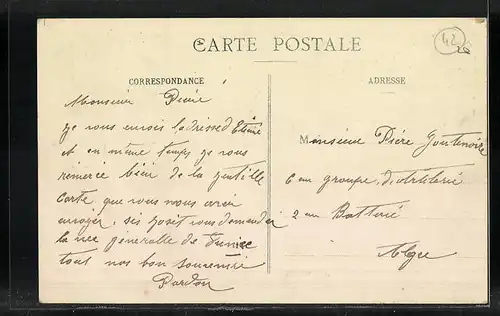 42
20
CARTE POSTALE
CORRESPONDANCE
Monsieur Pière
je vous envois ladresse d Etiene
et en même temps je vous
remercie bien de la gentille
carte que vous nous avai
envoyer
la généralle de
tout nos bon souvenire
Pardon
ADRESSE
Monsieur Pière Goutenoire
6 em groupe d'artilerie
2 em Batterie
Alger